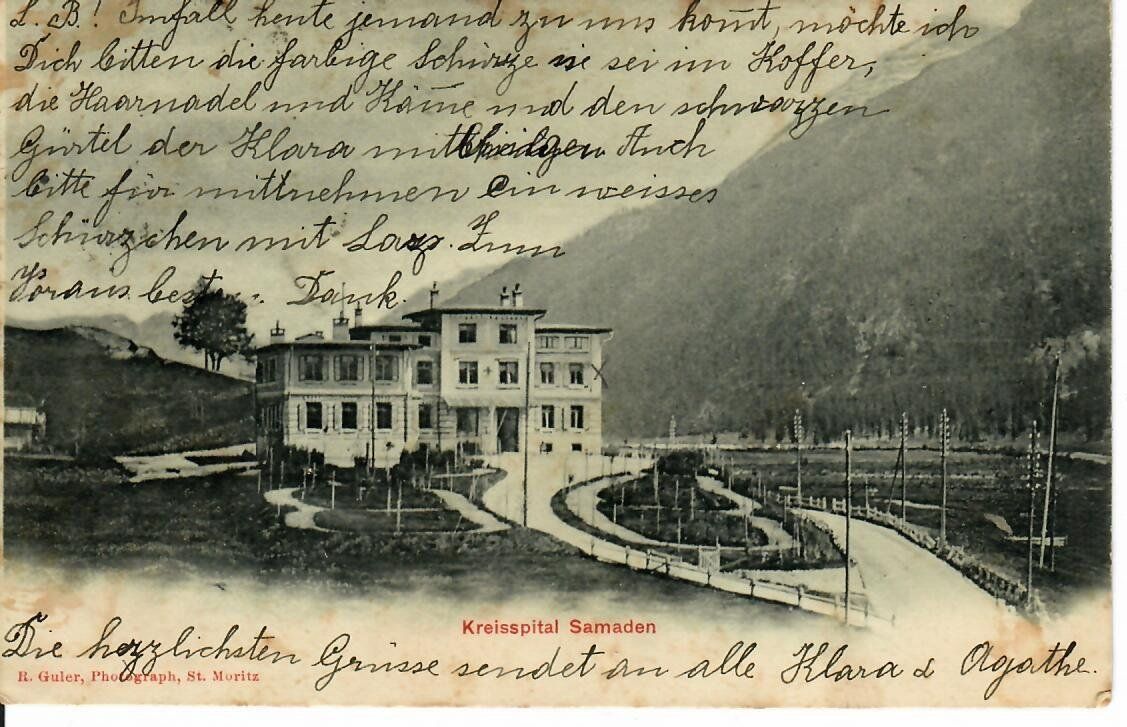 L. B.! Imfall heute jemand zu uns kom̅t, möchte ich
Dich bitten die farbige Schürze sie sei im Koffer,
die Haarnadel und Käm̅e und den schwarzen
Gürtel der Klara Auch
bitte für mittnehmen ein weisses
Schürzchen mit Zum
Voraus besten Dank.
Kreisspital Samaden
Die herzlichsten Grüsse sendet an alle Klara & Agathe.
R. Guler, Photograph, St. Moritz